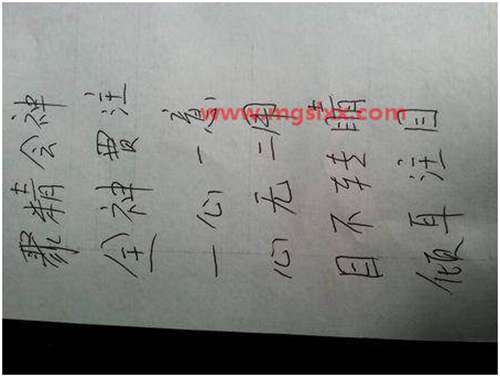 聚精会神
全神贯注
一心一意
心无二用
目不转睛
倾耳注目
www.mgslxx.com